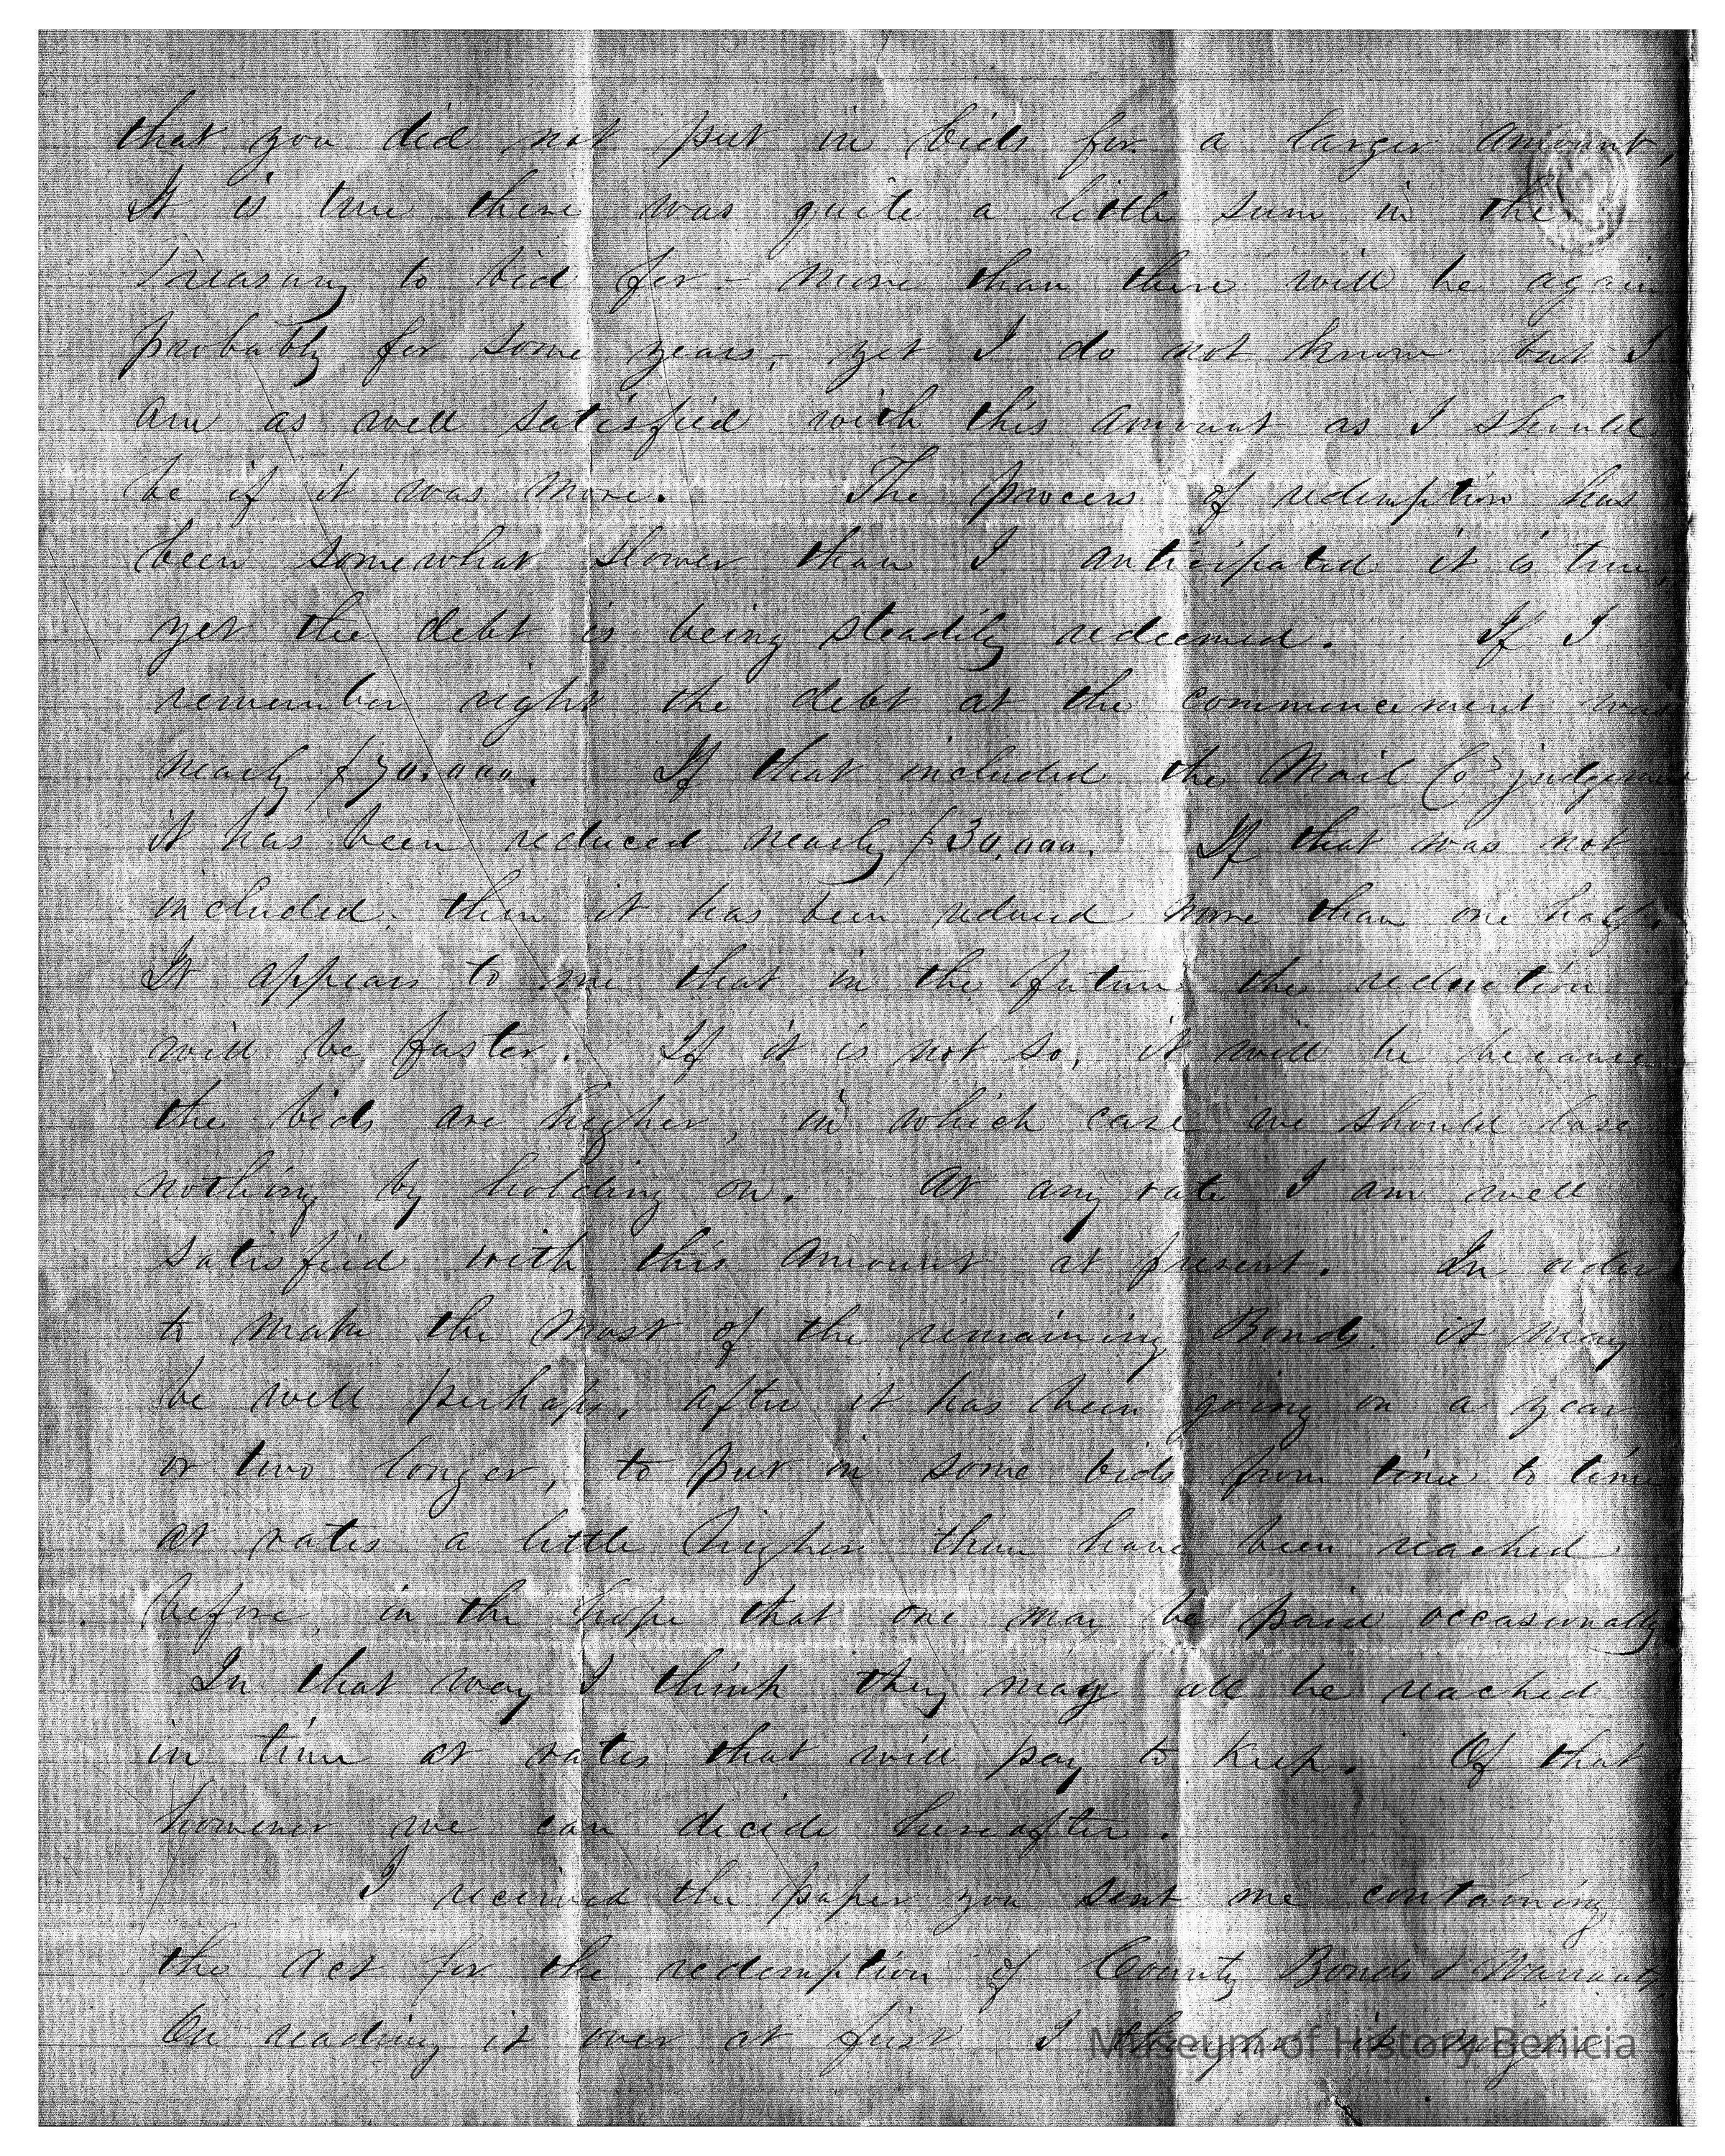 that you did not put in bids for a larger amount,
It is true there was quite a little sum in the
Treasury to bid for - more than there will be again
probably for some years, yet I do not know but I
am as well satisfied with this amount as I should
be if it was more. The process of redemption has
been somewhat slower than I anticipated it is true,
yet the debt is being steadily redeemed. If I
remember right the debt at the commencement was
nearly $70,000. If that included the Mail Co judgment
it has been reduced nearly $30,000. If that was not
included, then it has been reduced more than one half.
It appears to me that in the future the reduction
will be faster. If it is not so, it will be because
the bids are higher, in which case we should lose
nothing by holding on. At any rate I am well
satisfied with this amount at present. In order
to make the most of the remaining Bonds it may
be well perhaps, after it has been going on a year
or two longer, to put in some bids from time to time
at rates a little higher than have been reached
before, in the hope that one may be paid occasionally
In that way I think they may all be reached
in time at rates that will pay to keep. Of that
however we can decide hereafter.
I received the paper you sent me containing
the Act for the redemption of County Bonds & Warrants
On reading it over at first I
Museum of History Benicia